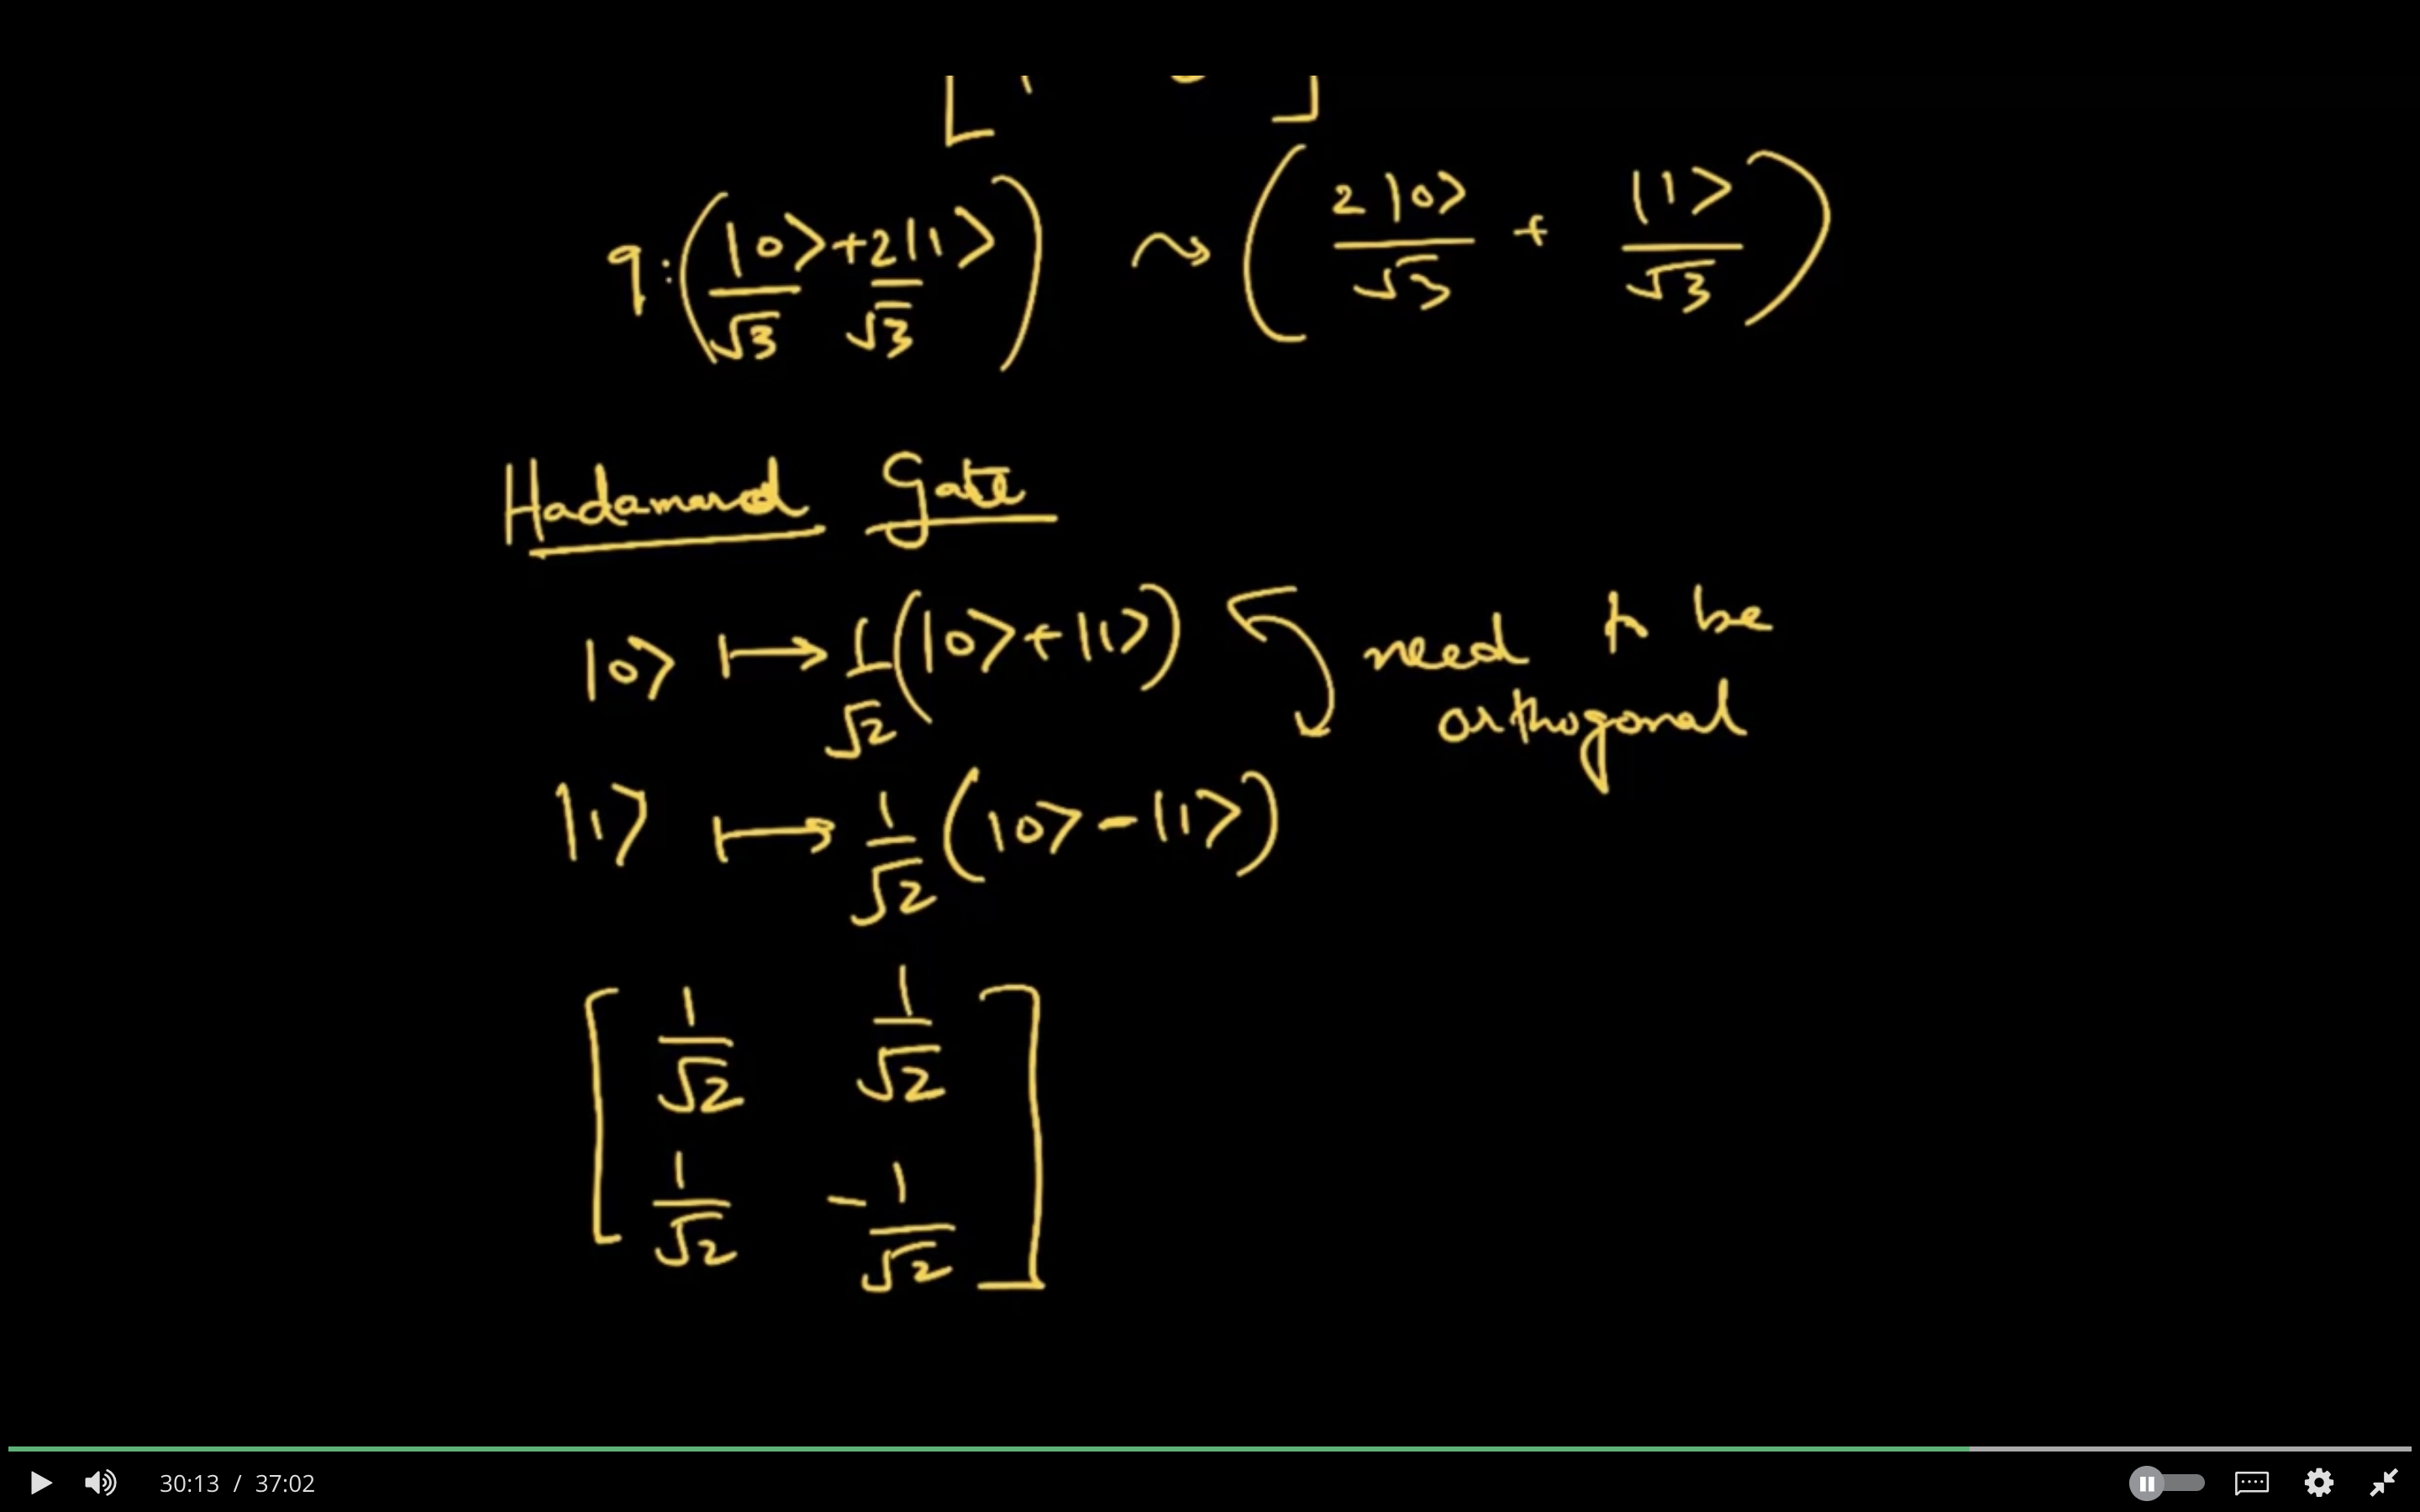 q: (|0⟩/√3 + 2|1⟩/√3) ⤳ (2|0⟩/√3 + |1⟩/√3)
Hadamard Gate
|0⟩ ↦ 1/√2 (|0⟩+|1⟩)
need to be
orthogonal
|1⟩ ↦ 1/√2 (|0⟩-|1⟩)
[ 1/√2 1/√2
1/√2 -1/√2 ]
30:13 / 37:02